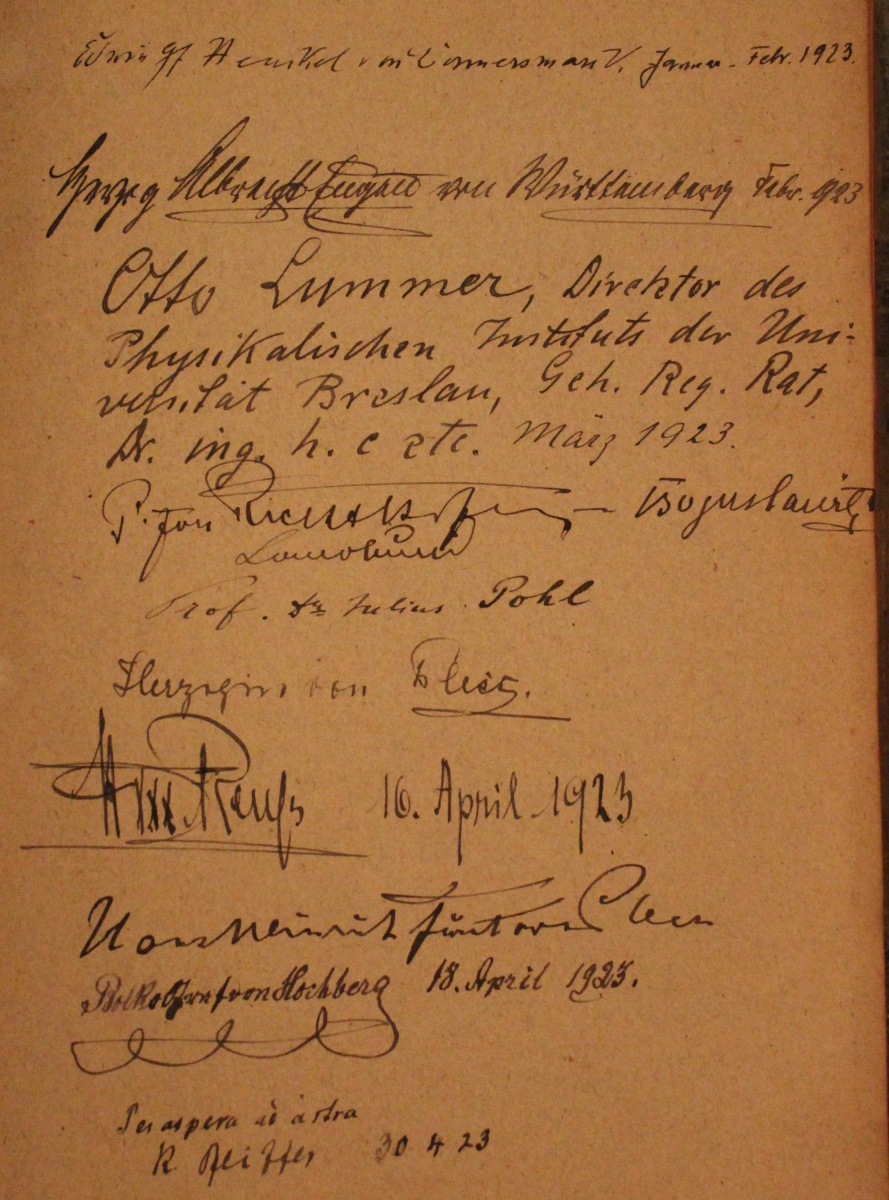 Edwin Gf Henckel von Donnersmarck, Januar - Febr. 1923.
Georg Albrecht Eugen von Württemberg Febr. 923
Otto Lummer, Direktor des
Physikalischen Instituts der Uni-
versität Breslau, Geh. Reg. Rat,
Dr. ing. h. c etc. März 1923.
von Richthofen — Boguslawitz
Prof. Dr Julius Pohl
Herzogin von Pless.
Reuß 16. April 1923
Hans Heinrich Fürst von Pless
Bolko Graf von Hochberg 18. April 1923.
Per aspera ad astra
R. Pfeiffer 30 4 23